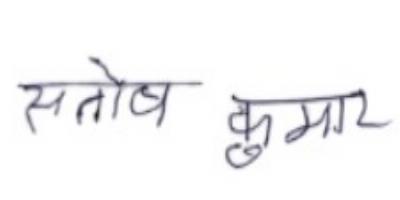 सतोष कुमार